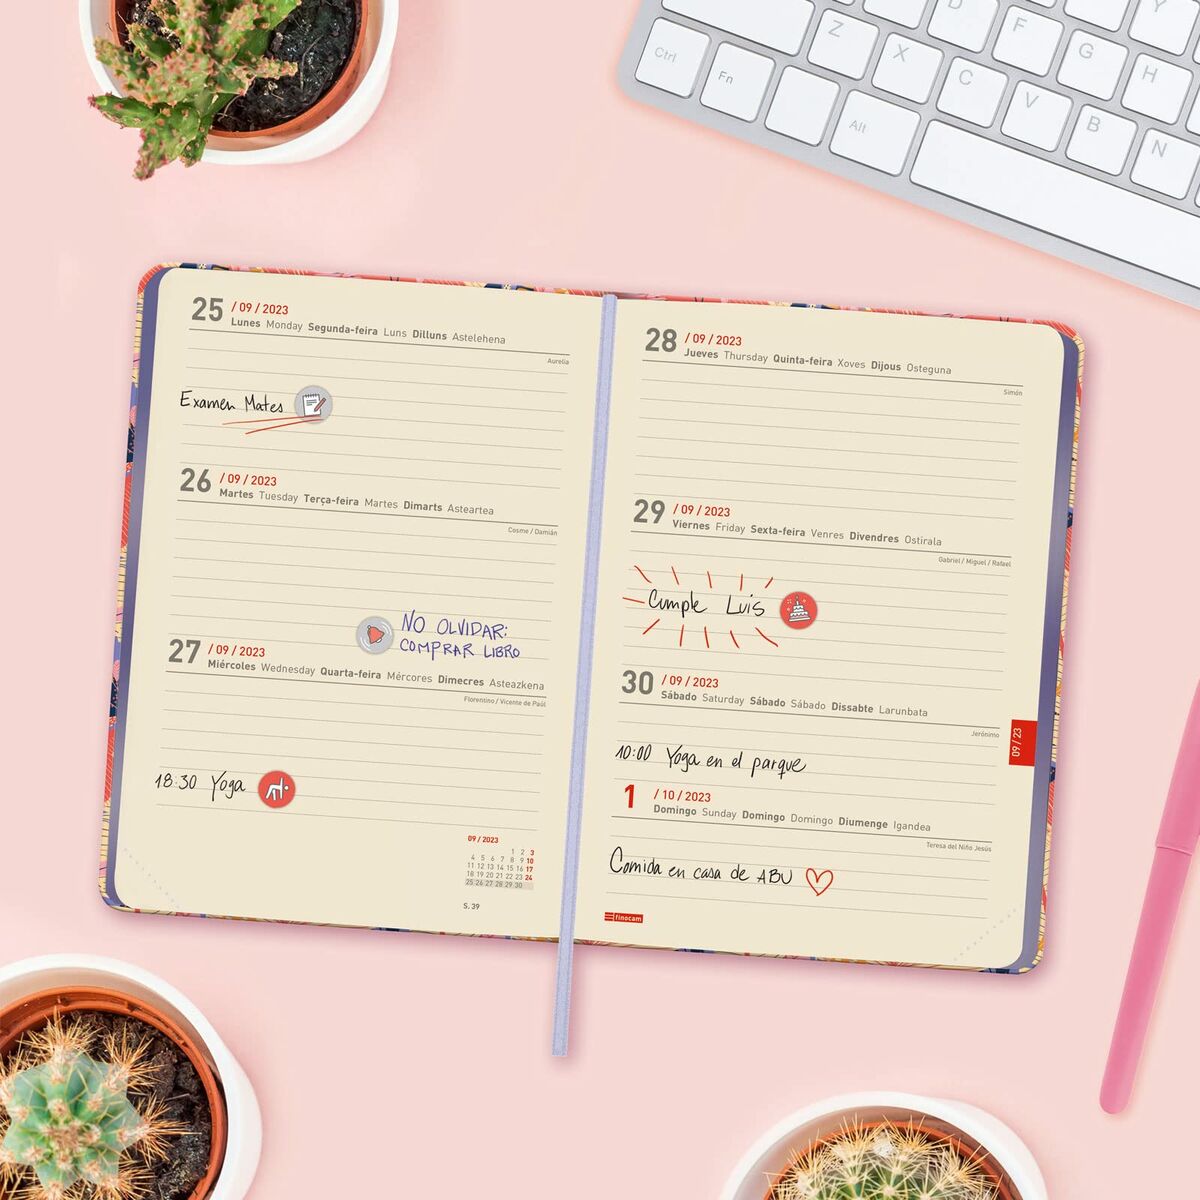 Ctrl
Fn
Alt
Z
X
C
V
B
N
D
F
G
H
Y
25 / 09 / 2023
Lunes Monday Segunda-feira Luns Dilluns Astelehena
Aurelia
Examen Mates
26 / 09 / 2023
Martes Tuesday Terça-feira Martes Dimarts Asteartea
Cosme / Damián
NO OLVIDAR:
COMPRAR LIBRO
27 / 09 / 2023
Miércoles Wednesday Quarta-feira Mércores Dimecres Asteazkena
Florentino / Vicente de Paúl
18:30 Yoga
09 / 2023
1 2 3
4 5 6 7 8 9 10
11 12 13 14 15 16 17
18 19 20 21 22 23 24
25 26 27 28 29 30
S. 39
28 / 09 / 2023
Jueves Thursday Quinta-feira Xoves Dijous Osteguna
Simón
29 / 09 / 2023
Viernes Friday Sexta-feira Venres Divendres Ostirala
Gabriel / Miguel / Rafael
Cumple Luis
30 / 09 / 2023
Sábado Saturday Sábado Sábado Dissabte Larunbata
Jerónimo
09 / 23
10:00 Yoga en el parque
1 / 10 / 2023
Domingo Sunday Domingo Domingo Diumenge Igandea
Teresa del Niño Jesús
Comida en casa de ABU
finocam